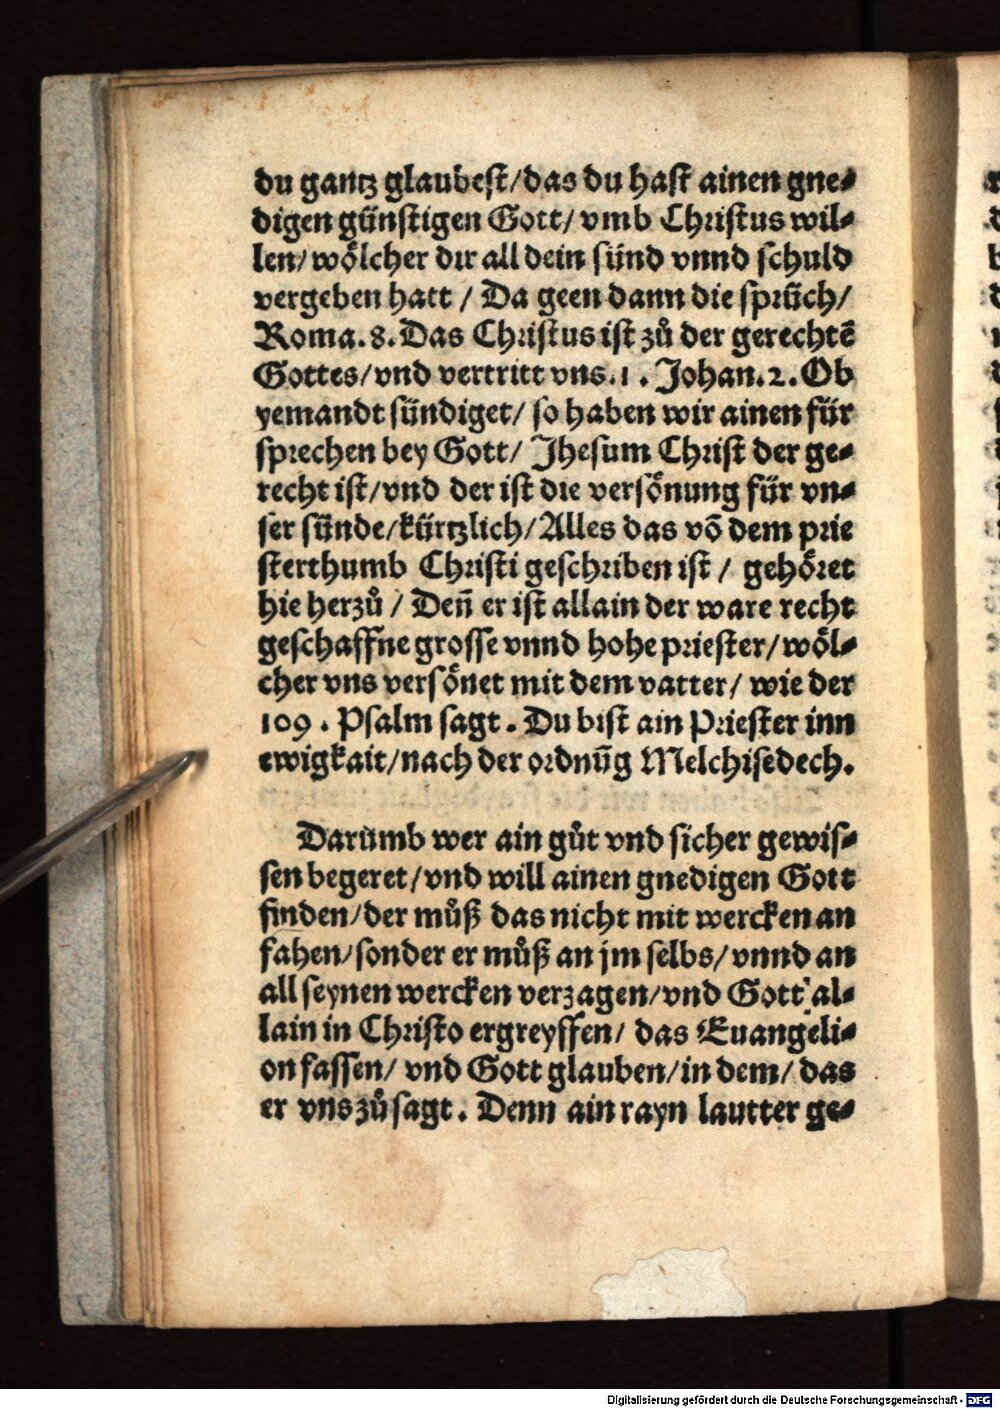 du gantz glaubest/das du hast ainen gne⸗
digen günstigen Gott/ vmb Christus wil⸗
len/ wölcher dir all dein sünd vnnd schuld
vergeben hatt / Da geen dann die sprüch/
Roma.8. Das Christus ist zů der gerechtē
Gottes/vnd vertritt vns.1. Johan.2. Ob
yemandt sündiget/ so haben wir ainen für
sprechen bey Gott/ Jhesum Christ der ge⸗
recht ist/vnd der ist die versönung für vn⸗
ser sünde/kürtzlich/Alles das võ dem prie
sterthumb Christi geschriben ist / gehöret
hie herzů / Deñ er ist allain der ware recht
geschaffne grosse vnnd hohe priester/wöl⸗
cher vns versönet mit dem vatter/ wie der
109. Psalm sagt. Du bist ain Priester inn
ewigkait/nach der ordnũg Melchisedech.
Darumb wer ain gůt vnd sicher gewis⸗
sen begeret/vnd will ainen gnedigen Gott
finden/der můß das nicht mit wercken an
fahen/sonder er můß an jm selbs/vnnd an
all seynen wercken verzagen/vnd Gott al⸗
lain in Christo ergreyffen/ das Euangeli⸗
on fassen/ vnd Gott glauben/in dem/ das
er vns zůsagt. Denn ain rayn lautter ge⸗
Digitalisierung gefördert durch die Deutsche Forschungsgemeinschaft - DFG